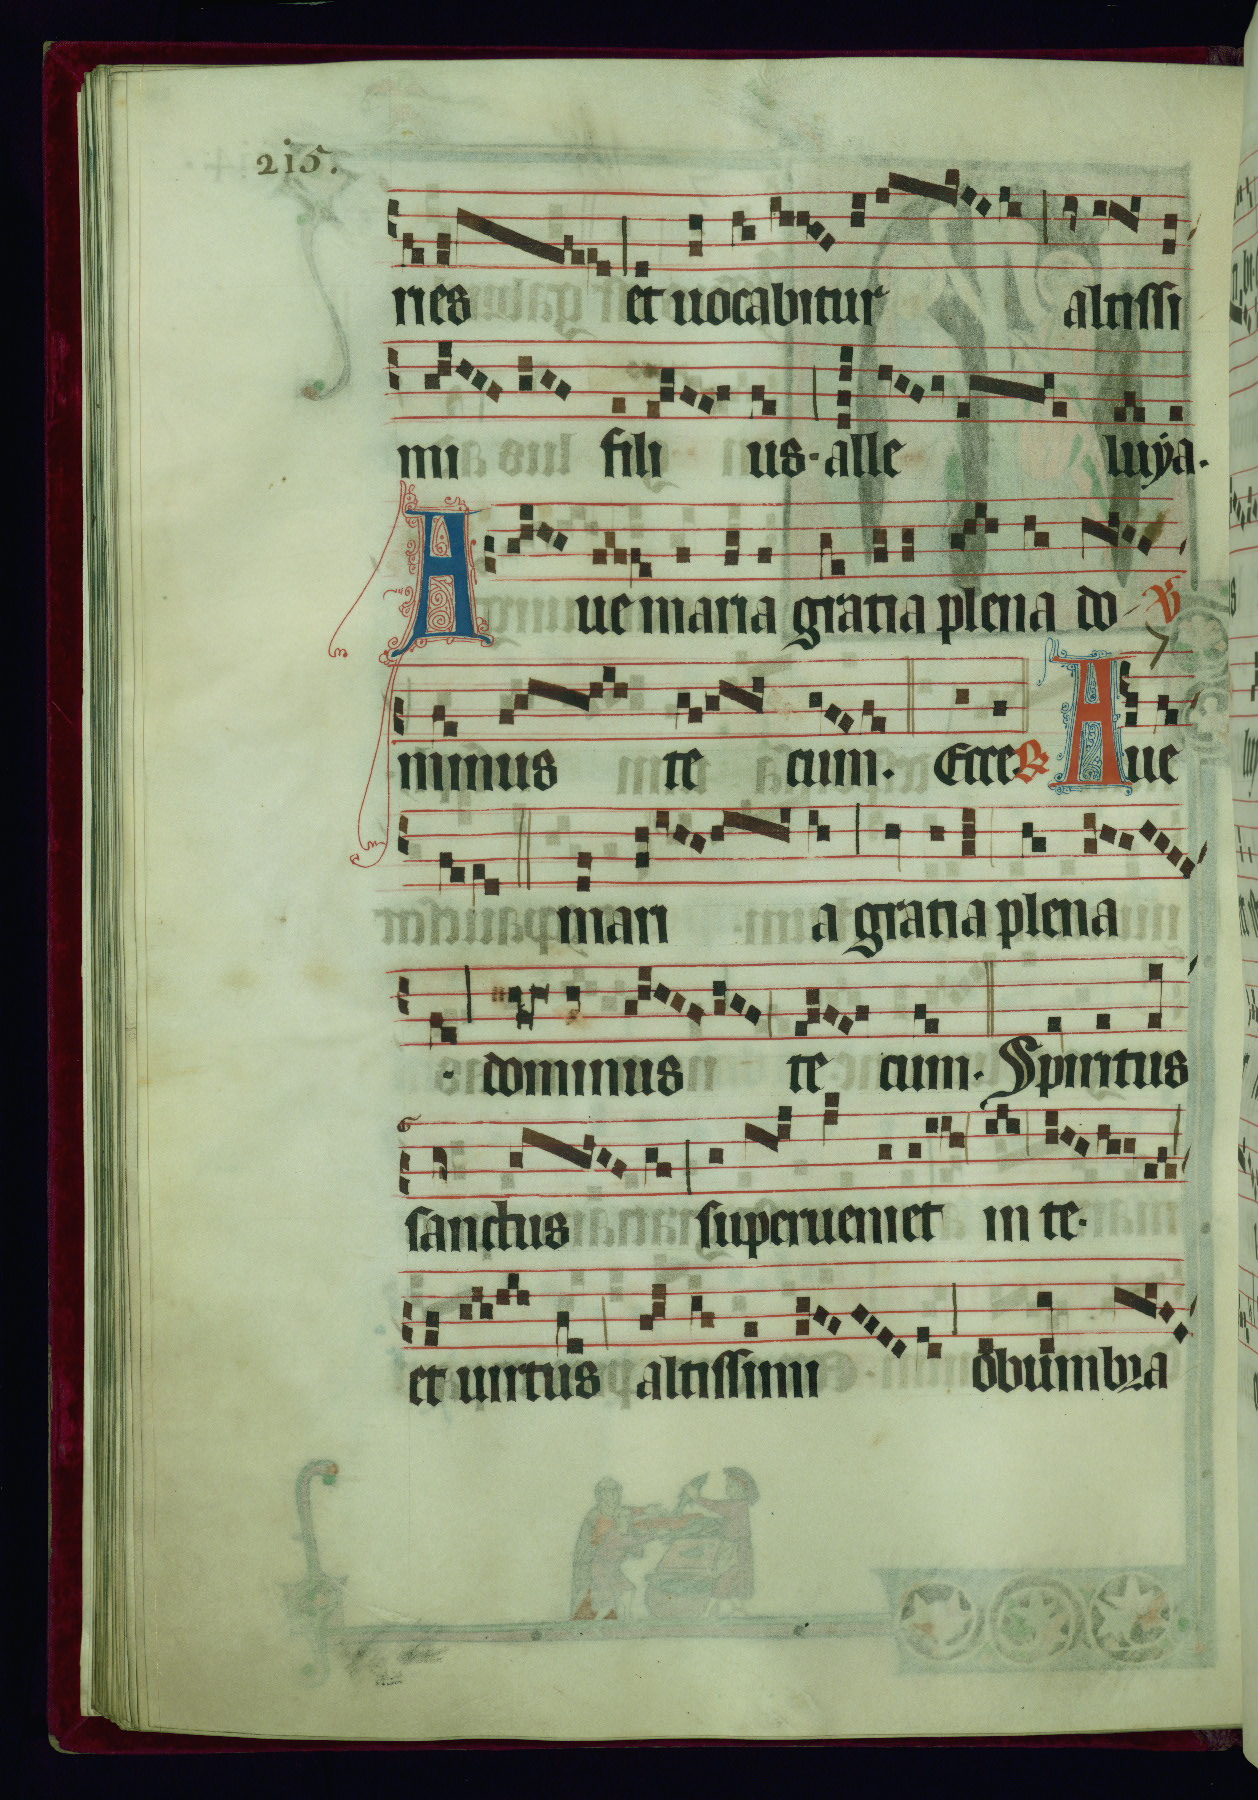 215.
ries et uocabitur altissi
mi fili us · alle luÿa ·
Aue maria gratia plena do V
minus te cum. Ecce R Aue
mari a gratia plena
· dominus te cum · Spiritus
sanctus superueniet in te ·
et uirtus altissimi obumbra